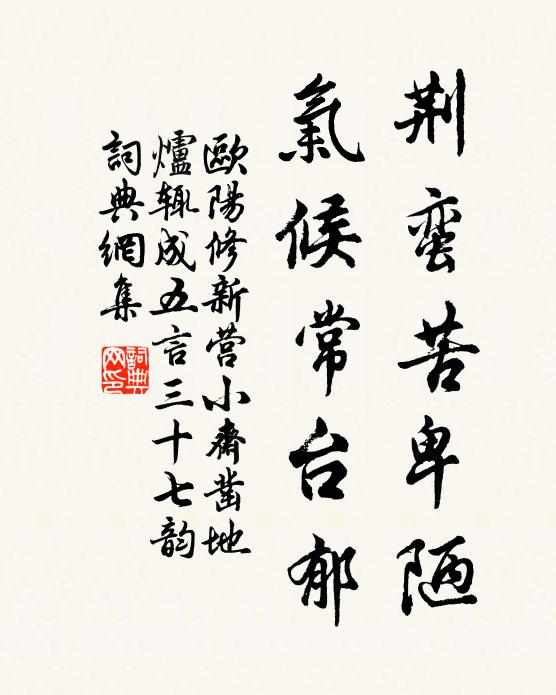 荆蛮苦卑陋
氣候常台郁
歐陽修新营小齋凿地
爐辄成五言三十七韵
詞典網集
詞典
网印